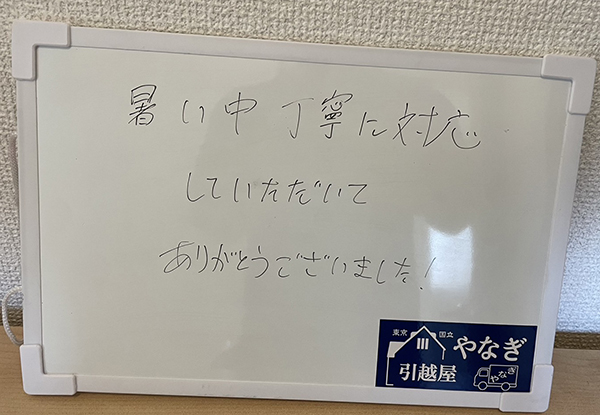 暑い中 丁寧に対応
していただいて
ありがとうございました!
東京 国立
やなぎ
引越屋
やなぎ